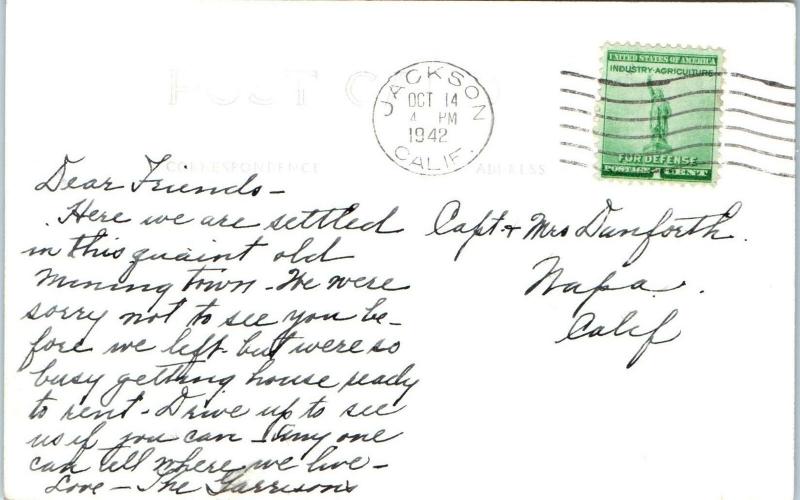 POST CARD
JACKSON
OCT 14
4 PM
1942
CALIF.
UNITED STATES OF AMERICA
INDUSTRY-AGRICULTURE
FOR DEFENSE
POSTAGE 1 CENT
CORRESPONDENCE
ADDRESS
Dear Friends -
Here we are settled
in this quaint old
mining town - We were
sorry not to see you be-
fore we left but were so
busy getting house ready
to rent - Drive up to see
us if you can - Any one
can tell where we live -
Love - The Garrisons
Capt + Mrs Danforth.
Napa.
Calif